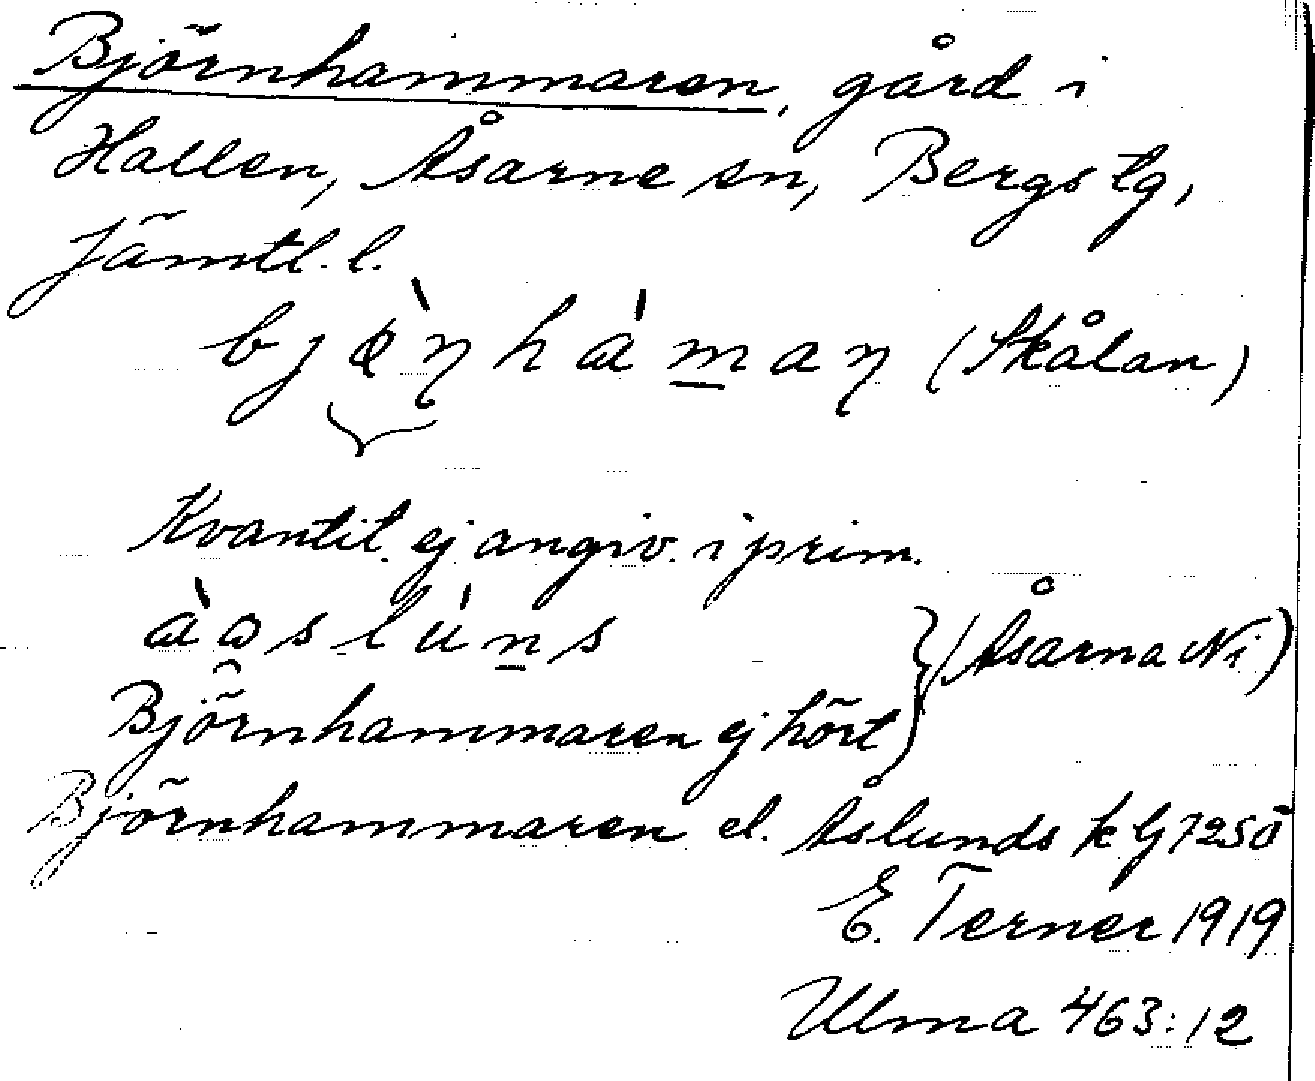 Björnhammaren, gård i
Hallen, Åsarne sn, Bergs tg,
Jämtl. l.
bjø̀ŋhàm̲aŋ (Skålan)
Kvantit. ej angiv. i prim.
àɷslùn̲s
Björnhammaren ej hört } (Åsarna Ni)
Björnhammaren el. Åslunds k bl 72SÖ
E. Terner 1919
Ulma 463:12